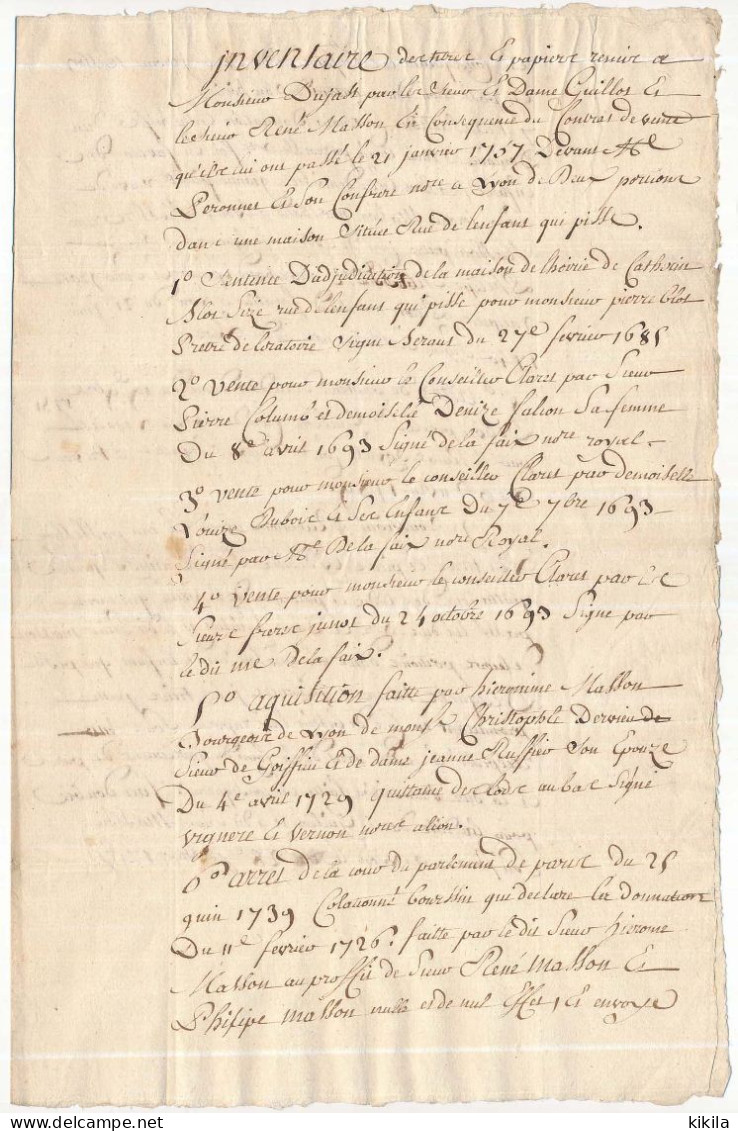 inventaire des titres Et papiers remis a
Monsieur Dujast par les sieur Et Dame Guillot Et
le sieur René Masson En Consequence du Contrat de vente
qu'ils lui ont passé le 21 janvier 1757 Devant Me
Peronnet Et son Confrere nore a Lyon de Deux portions
dans une maison située Rue de lenfant qui pisse.
1o Sentence Dadjudication de la maison de lhoirie de Catherin
Blot size rue de lenfant qui pisse pour monsieur pierre Blot
Pretre de loratoire signé du 27e fevrier 1685
2o vente pour monsieur le Conseiller Claret par Sieur
Pierre Columb et demoiselle Denize falcon sa femme
Du 8e avril 1693 Signé de la faix nore royal
3o vente pour monsieur le conseiller Claret par demoiselle
Louize Dubois Et ses Enfans du 7e 7bre 1693
signé par Me De la faix nore Royal.
4o vente pour monsieur le conseiller Claret par les
sieurs freres junot du 24 octobre 1693 Signé par
le dit me De la faix.
5o aquisition faitte par hieronime Masson
Bourgeois de Lyon de monsr Christophle Dervieu de
Sieur de Goiffieu Et de dame jeanne Ruffier son Epouze
Du 4e avril 1729 quittance des lods au bas Signé
vignere Et vernon nores a lion.
6o arret de la cour du parlement de paris du 25
juin 1739 Colationné boursin qui declare la donnation
Du 11e fevrier 1726. faitte par le dit sieur hierome
Masson au proffit de Sieur René Masson Et
Philipe Masson nulle et de nul Effet, Et envoye
kikila